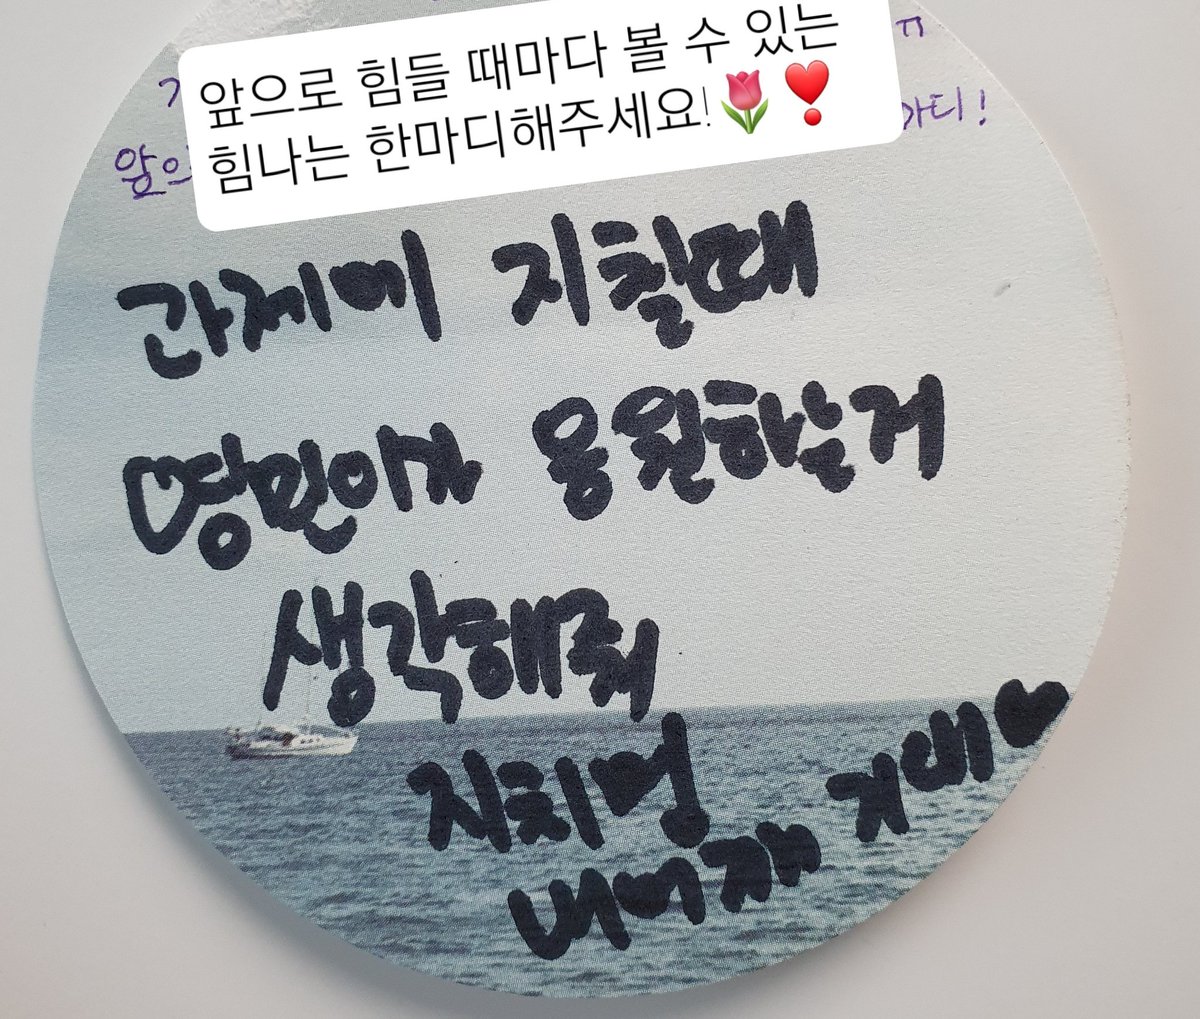 앞으로 힘들 때마다 볼 수 있는
힘나는 한마디해주세요!🌷❣️
앞으
과제에 지칠때
♡영민이가 응원하는거
생각해줘
지치면
내어깨 기대♥